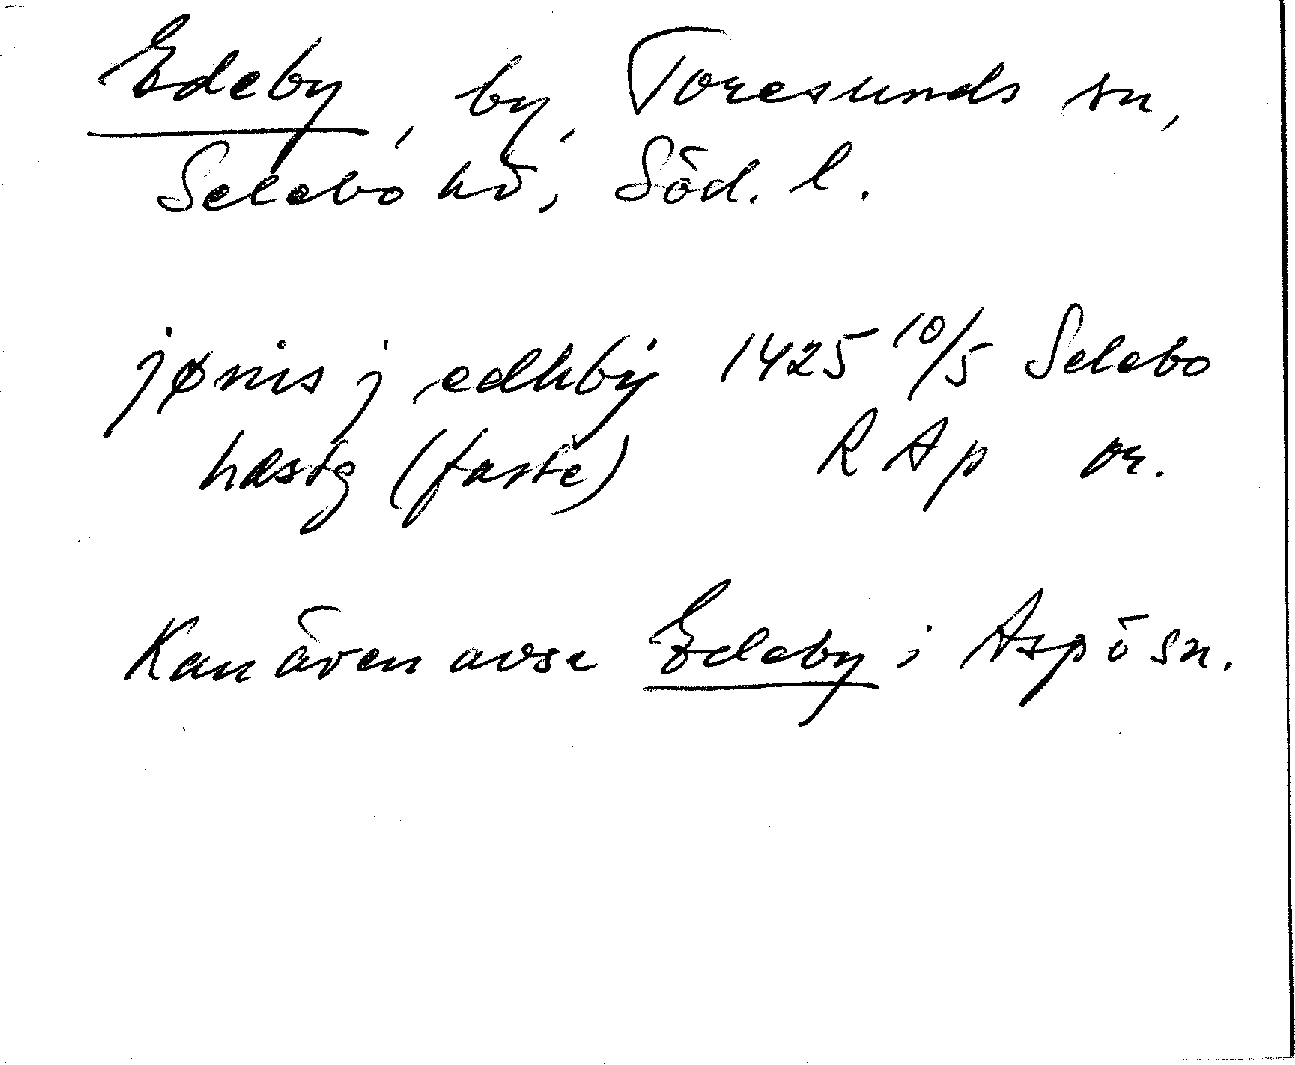 Edeby, by, Toresunds sn,
Selebo hd, Söd. l.
jønis j edhby 1425 10/5 Selebo
hæstg (faste) RAp or.
Kan även avse Edeby i Aspö sn.